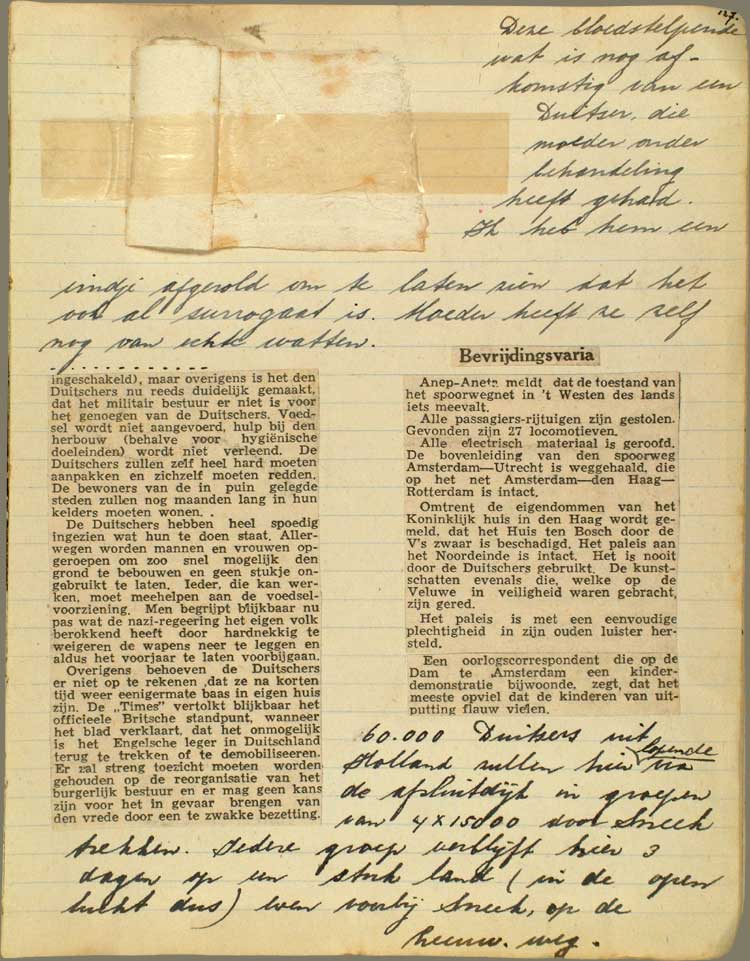 127.
Deze bloedstelpende
wat is nog af-
komstig van een
Duitser, die
moeder onder
behandeling
heeft gehad.
Ik heb hem een
eindje afgerold om te laten zien dat het
ook al surrogaat is. Moeder heeft ze zelf
nog van echte watten.
ingeschakeld), maar overigens is het den
Duitschers nu reeds duidelijk gemaakt,
dat het militair bestuur er niet is voor
het genoegen van de Duitschers. Voed-
sel wordt niet aangevoerd, hulp bij den
herbouw (behalve voor hygiënische
doeleinden) wordt niet verleend. De
Duitschers zullen zelf heel hard moeten
aanpakken en zichzelf moeten redden.
De bewoners van de in puin gelegde
steden zullen nog maanden lang in hun
kelders moeten wonen. .
De Duitschers hebben heel spoedig
ingezien wat hun te doen staat. Aller-
wegen worden mannen en vrouwen op-
geroepen om zoo snel mogelijk den
grond te bebouwen en geen stukje on-
gebruikt te laten. Ieder, die kan wer-
ken, moet meehelpen aan de voedsel-
voorziening. Men begrijpt blijkbaar nu
pas wat de nazi-regeering het eigen volk
berokkend heeft door hardnekkig te
weigeren de wapens neer te leggen en
aldus het voorjaar te laten voorbijgaan.
Overigens behoeven de Duitschers
er niet op te rekenen ,dat ze na korten
tijd weer eenigermate baas in eigen huis
zijn. De „Times” vertolkt blijkbaar het
officieele Britsche standpunt, wanneer
het blad verklaart, dat het onmogelijk
is het Engelsche leger in Duitschland
terug te trekken of te demobiliseeren.
Er zal streng toezicht moeten worden
gehouden op de reorganisatie van het
burgerlijk bestuur en er mag geen kans
zijn voor het in gevaar brengen van
den vrede door een te zwakke bezetting.
Bevrijdingsvaria
Anep-Aneta meldt dat de toestand van
het spoorwegnet in 't Westen des lands
iets meevalt.
Alle passagiers-rijtuigen zijn gestolen.
Gevonden zijn 27 locomotieven.
Alle electrisch materiaal is geroofd.
De bovenleiding van den spoorweg
Amsterdam—Utrecht is weggehaald, die
op het net Amsterdam—den Haag—
Rotterdam is intact.
Omtrent de eigendommen van het
Koninklijk huis in den Haag wordt ge-
meld, dat het Huis ten Bosch door de
V's zwaar is beschadigd. Het paleis aan
het Noordeinde is intact. Het is nooit
door de Duitschers gebruikt. De kunst-
schatten evenals die, welke op de
Veluwe in veiligheid waren gebracht,
zijn gered.
Het paleis is met een eenvoudige
plechtigheid in zijn ouden luister her-
steld.
Een oorlogscorrespondent die op de
Dam te Amsterdam een kinder-
demonstratie bijwoonde, zegt, dat het
meeste opviel dat de kinderen van uit-
putting flauw vielen.
60.000 Duitsers uit
Holland zullen hier lopende via
de afsluitdijk in groepen
van 4 x 15000 door Sneek
trekken. Iedere groep verblijft hier 3
dagen op een stuk land (in de open
lucht dus) even voorbij Sneek, op de
Leeuw. weg.